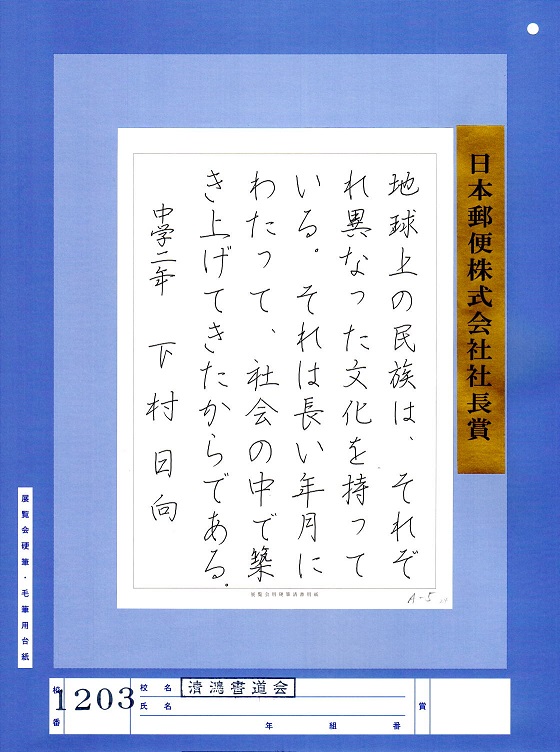 日本郵便株式会社社長賞
地球上の民族は、それぞ
れ異なった文化を持って
いる。それは長い年月に
わたって、社会の中で築
き上げてきたからである。
中学二年 下村日向
展覧会用硬筆清書用紙
A-5
展覧会硬筆・毛筆用台紙
1203
校名 清鴻書道会
氏名
年 組 番
賞